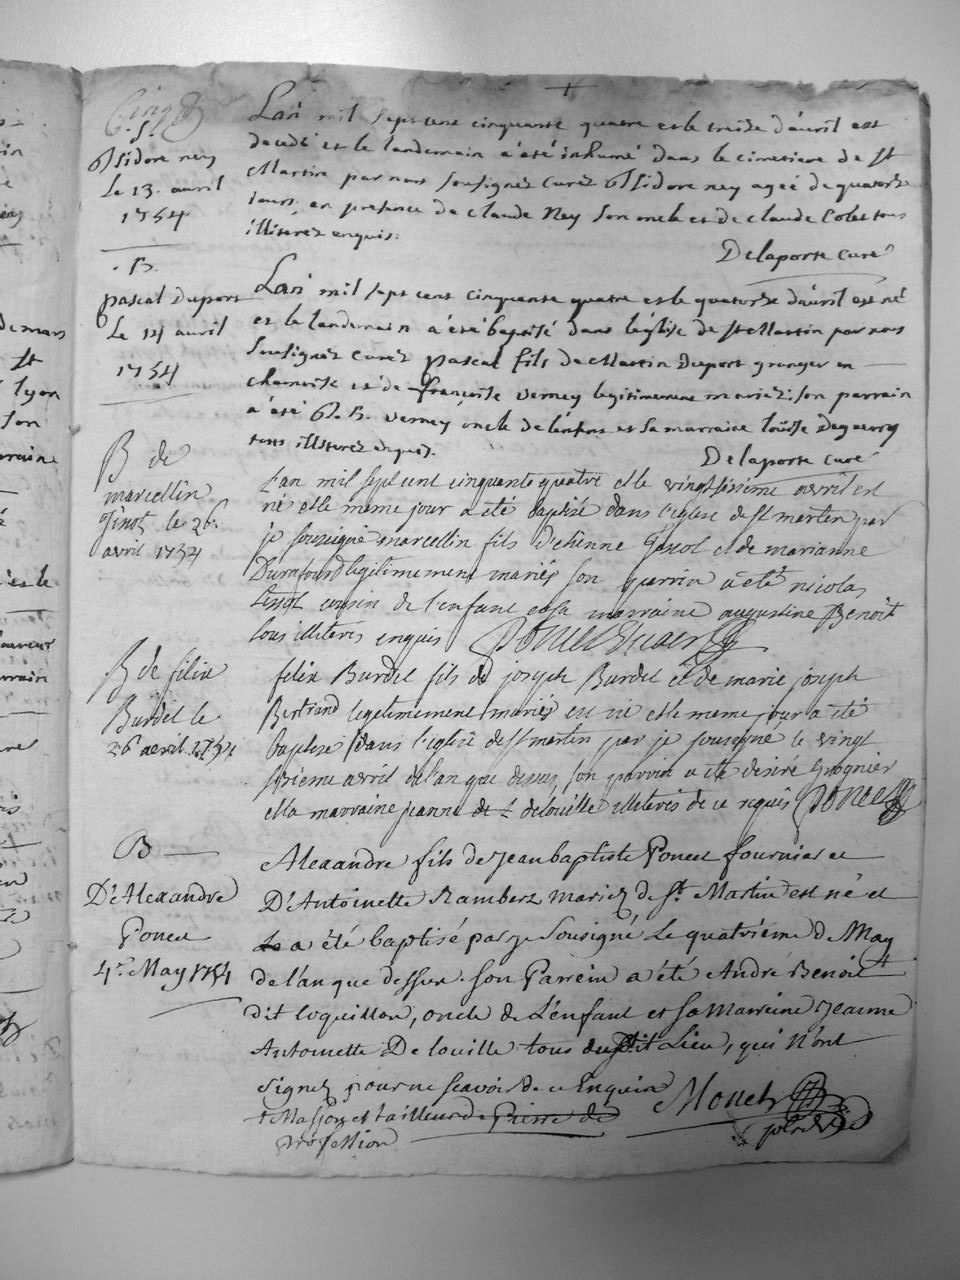 Cinq
S
Isidore ney
Le 13. avril
1754
L'an mil sept cent cinquante quatre et le treize d'avril est
decedé et le landemain a été inhumé dans le cimetiere de St
Martin par nous sousignez curéz Isidore ney ageé de quatorze
jours, en presence de Claude Ney son oncle et de Claude Colet tous
illiterez enquis.
Delaporte curé
B.
pascal Duport
Le 14 avril
1754
L'an mil sept cent cinquante quatre et le quatorze d'avril est né
et le landemain a été baptisé dans l'église de St Martin par nous
sousignez curéz pascal fils de Martin Duport granger en
chamoise et de françoise verney legitimement mariéz: son parrain
a été J. B. verney oncle de l'enfant et sa marraine loüise Deguerry
tous illiterez enquis.
Delaporte curé
B de
marcellin
ginot le 26.
avril 1754
L'an mil sept cent cinquante quatre et le vingt sixieme avril est
né et le meme jour a été baptisé dans l'eglise de st martin par
je sousigné marcellin fils d'etienne ginot et de marianne
Durafourd legitimement mariés son parrin a eté nicolas
cousin de l'enfant et sa marraine augustine Benoît
tous illiteres enquis Poncet vicaire
B de felix
Burdel le
26 avril 1754
felix Burdel fils de joseph Burdel et de marie joseph
Bertrand legitimement mariés est né et le meme jour a été
baptisé dans l'eglise de st martin par je sousigné le vingt
sixieme avril de l'an que dessus, son parrin a eté desiré Grognier
et la marraine jeanne de louille illiteres de ce requis Poncet
B
D'Alexandre
Poncet
4e. May 1754
Alexandre fils de Jean baptiste Poncet fournier et
D'Antoinette Rambert mariéz de St. Martin est né et
a été baptisé par je sousigné Le quatriéme de May
de l'an que dessus. son Parrein a été André Benoit
dit Coquillon, oncle de L'enfant et sa Marreine Jeanne
Antoinette De louille tous dudit Lieu, qui n'ont
signéz pour ne scavoir de ce Enquis
+ Masson et tailleur de Pierre de
profession
Monet